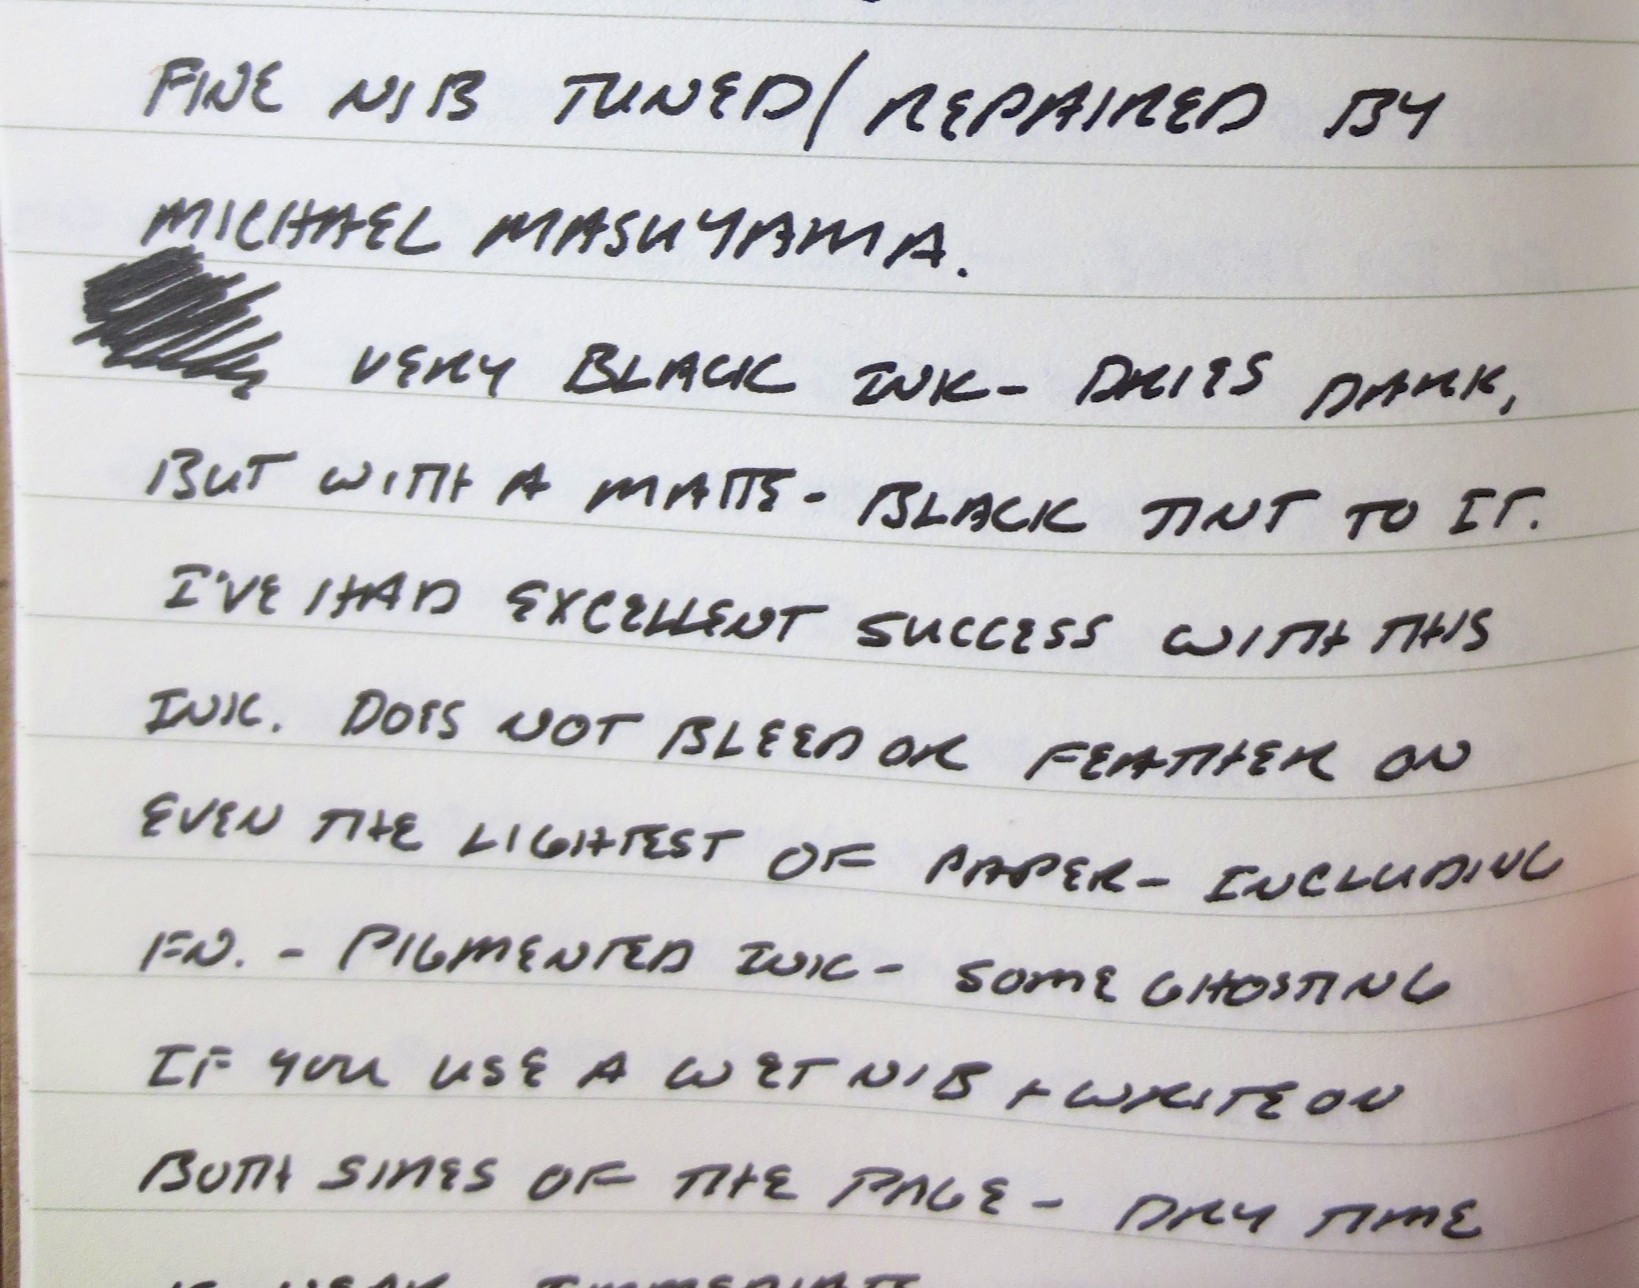 FINE NIB TUNED/REPAIRED BY
MICHAEL MASUYAMA.
VERY BLACK INK- DRIES DARK,
BUT WITH A MATTE-BLACK TINT TO IT.
I'VE HAD EXCELLENT SUCCESS WITH THIS
INK. DOES NOT BLEED OR FEATHER ON
EVEN THE LIGHTEST OF PAPER- INCLUDING
FN. - PIGMENTED INK- SOME GHOSTING
IF YOU USE A WET NIB + WRITE ON
BOTH SIDES OF THE PAGE - DRY TIME
IS NEAR IMMEDIATE